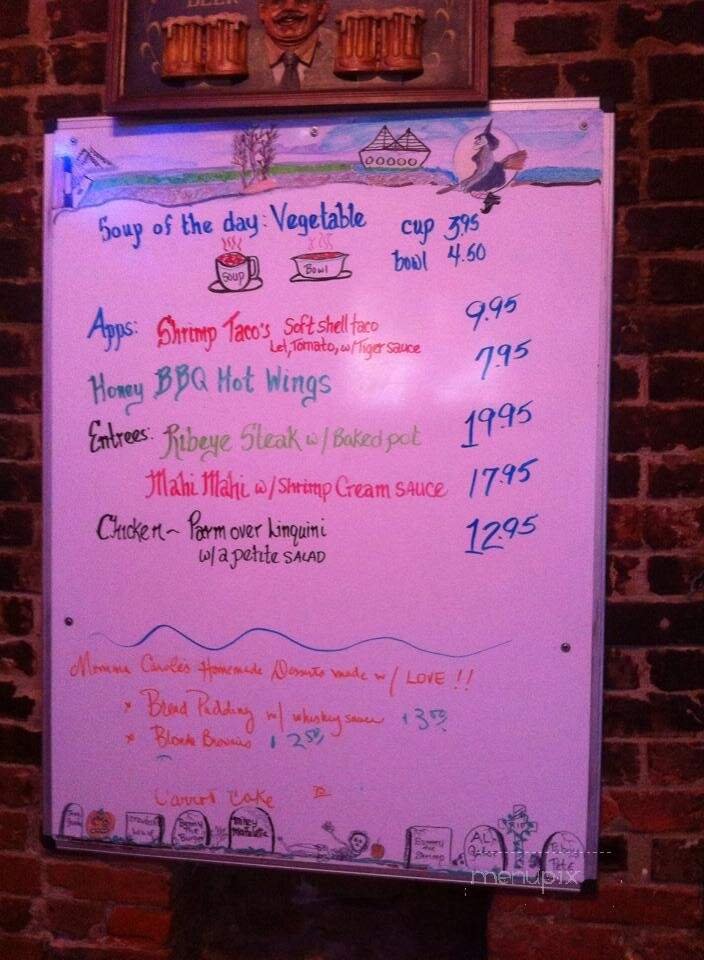 BEER
Soup of the day: Vegetable cup 3.95
bowl 4.50
SOUP
Bowl
Apps: Shrimp Taco's Soft shell taco 9.95
Let, Tomato, w/ Tiger sauce
Honey BBQ Hot Wings 7.95
Entrees: Ribeye Steak w/ Baked pot 19.95
Mahi Mahi w/ Shrimp Cream SAUCE 17.95
Chicken~ Parm over Linquini 12.95
w/ a petite SALAD
Momma Carole's Homemade Desserts made w/ LOVE !!
x Bread Pudding w/ whiskey sauce 3.50
x Blonde Brownies 2.50
Carrot Cake
RIP
AL
Toby
THE
menupix